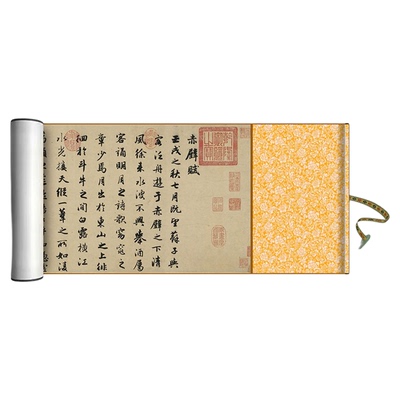 赤壁賦
壬戌之秋七月既望蘇子與
客泛舟遊于赤壁之下清
風徐來水波不興舉酒屬
客誦明月之詩歌窈窕之
章少焉月出於東山之上徘
徊於斗牛之間白露橫江
水光接天縱一葦之所如凌